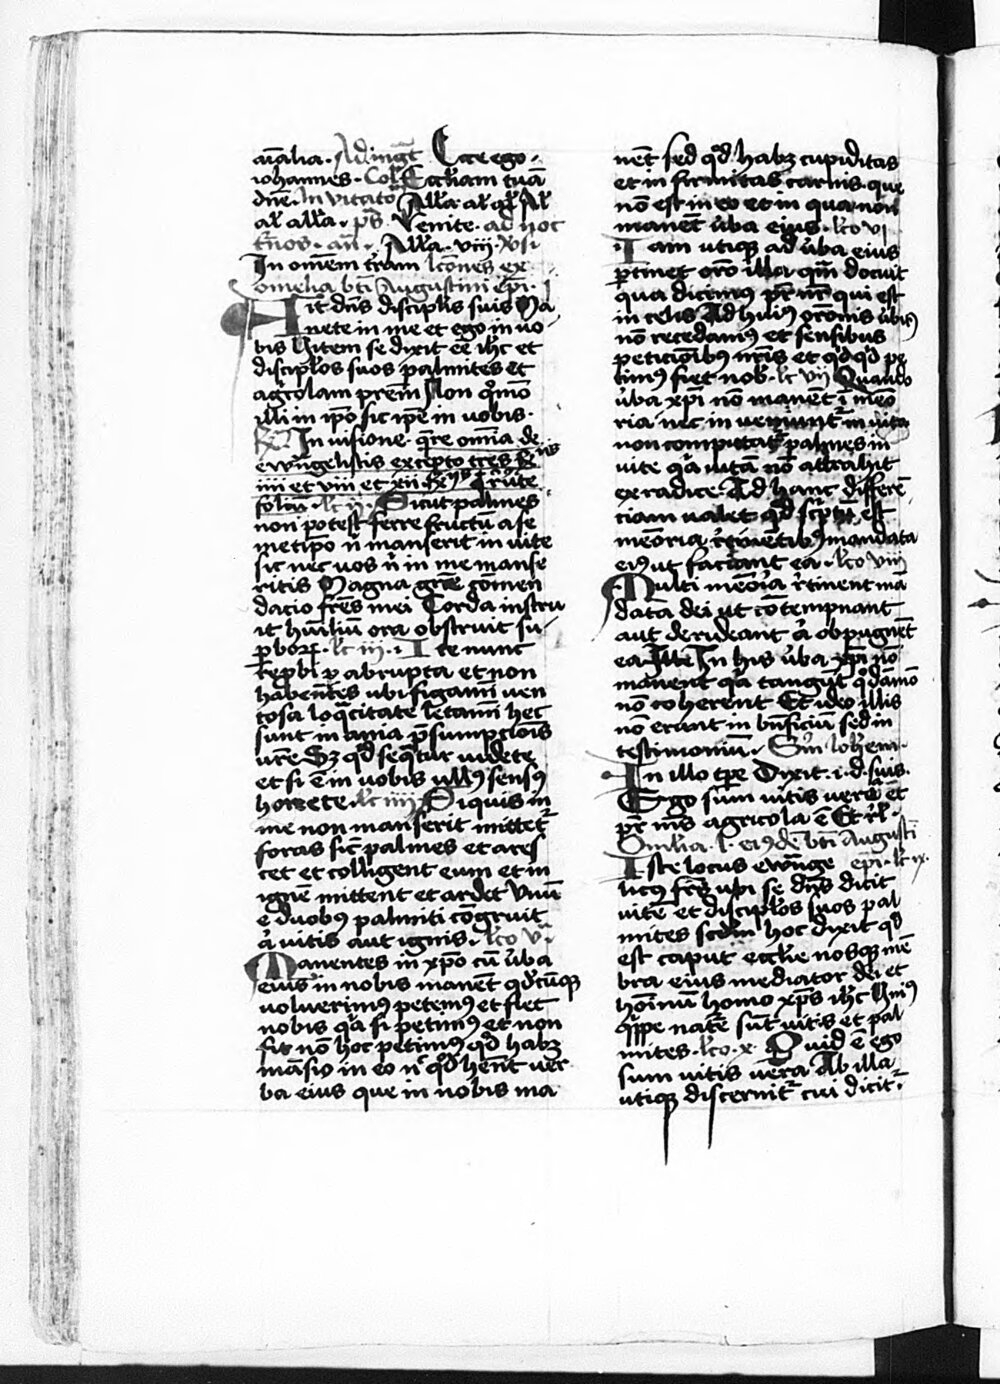 aīalia. Ad mgt̄ Ecce ego.
iohannes. Col̄ Eccl̄iam tuā
dn̄e. In vitato All̄a al̄ al̄ Al̄
al̄ all̄a. ps̄ Venite. ad noc
t̄nos. an̄. All̄a. viii. v̓si
In om̄em t̓ram lc̄ones ex
omelia bt̄i Augustini ep̄i.
Ait dn̄s discipl̄is suis Ma
nete in me et ego in vo
bis Vitem se dixit eē ih̄c et
discipl̄os suos palmites et
ag̓colam pr̄em Non qͦmō
illi in ip̄o sic ip̄e in vobis.
R̄ In visione. q̄re om̄ia de
ewāngelistis excepto tres R̄iis
iiii et viii et xii
lc̄ ii. Sicut palmes
non potest ferre fructū a se
metip̄o n̓ manserit in vite
sic nec vos n̓ in me manse
ritis Magna gr̄ae cōmen
dacio fr̄es mei Corda instru
it hūiliū ora obstruit su
p̄bor̄. lc̄ iii. Ite nunc
rep̄bi p abrupta et non
habentes ubi figamī ven
tosa loq̓citate letamī hec
sunt in aīa p̄sumpcionis
vr̄e. Sꝫ qd̄ seq̄tur videte
et si ē in vobis ullꝰ sensꝰ
horrete. lc̄ iiii Si quis in
me non manserit mittet̄
foras sic̄ palmes et ares
cet et colligent eum et in
ignē mittent et ardet Vnū
e duobꝰ palmiti cōgruit
a̓ vitis aut ignis. lc̄o v.
Manentes in xp̄o cū v̓ba
eius in nobis manēt qd̓cūqꝫ
voluerimꝰ petemꝰ et fiet
nobis q̓a si petimꝰ et non
fit nō hoc petimꝰ qd̄ habꝫ
māsio in eo n̓ qd̄ hēnt ver
ba eius que in nobis ma
nēt sed qd̄ habꝫ cupiditas
et infirmitas carnis. que
nō est in eo et in qua non
manēt v̓ba eius. lc̄o vi
Iam utiqꝫ ad v̓ba eius
ptinet orō illa qm̄ docuit
qua dicimꝰ pr̄ nr̄ qui est
in celis Ad huiꝰ orōnis v̓bis
nō recedamus et sensibus
peticioībꝰ nr̄is et qd̓qd̓ pe
timꝰ fiet nob̓. lc̄ vii Quando
v̓ba xp̄i nō manēt ī memo
ria nec in veniunt̄ in vita
non computat̄ palmes in
vite q̓a vitā nō attrahit
ex radice. Ad hanc differē
ciam valet qd̄ sc̓ptū est
memoria r̓tinētibꝰ mandata
eiꝰ ut faciant ea. lc̄o viii
Multi mēoia r̓tinent mā
data dei ut cōtempnant
aut derideant a̓ obpugnēt
ea Ille In his v̓ba xp̄i nō
manent q̓a tangūt qͦdāmō
nō coherent Et ideo illis
nō erunt in bn̄ficiū sed in
testimoniū. Sm̄ Ioh̄em.
In illo tp̄e Dixit. i. d. suis.
Ego sum vitis vera et
pr̄ m̄s agricola ē Et rl̓.
Omilia. l. eiꝰdē bt̄i Augusti
Iste locus ewānge ep̄i. lc̄ ix.
licus fr̄es ubi se dn̄s dicit
vitē et discipl̄os suos pal
mites scdm̄ hoc dixit qd̄
est caput eccl̄ie nosqꝫ mē
bra eius mediator dei et
hoīnū homo xp̄s ih̄c Vniꝰ
q̓ppe nat̄e sūt vitis et pal
mites. lc̄o. x. Quid ē ego
sum vitis vera Ab illa
utiqꝫ discernit̄ cui dicit̄.